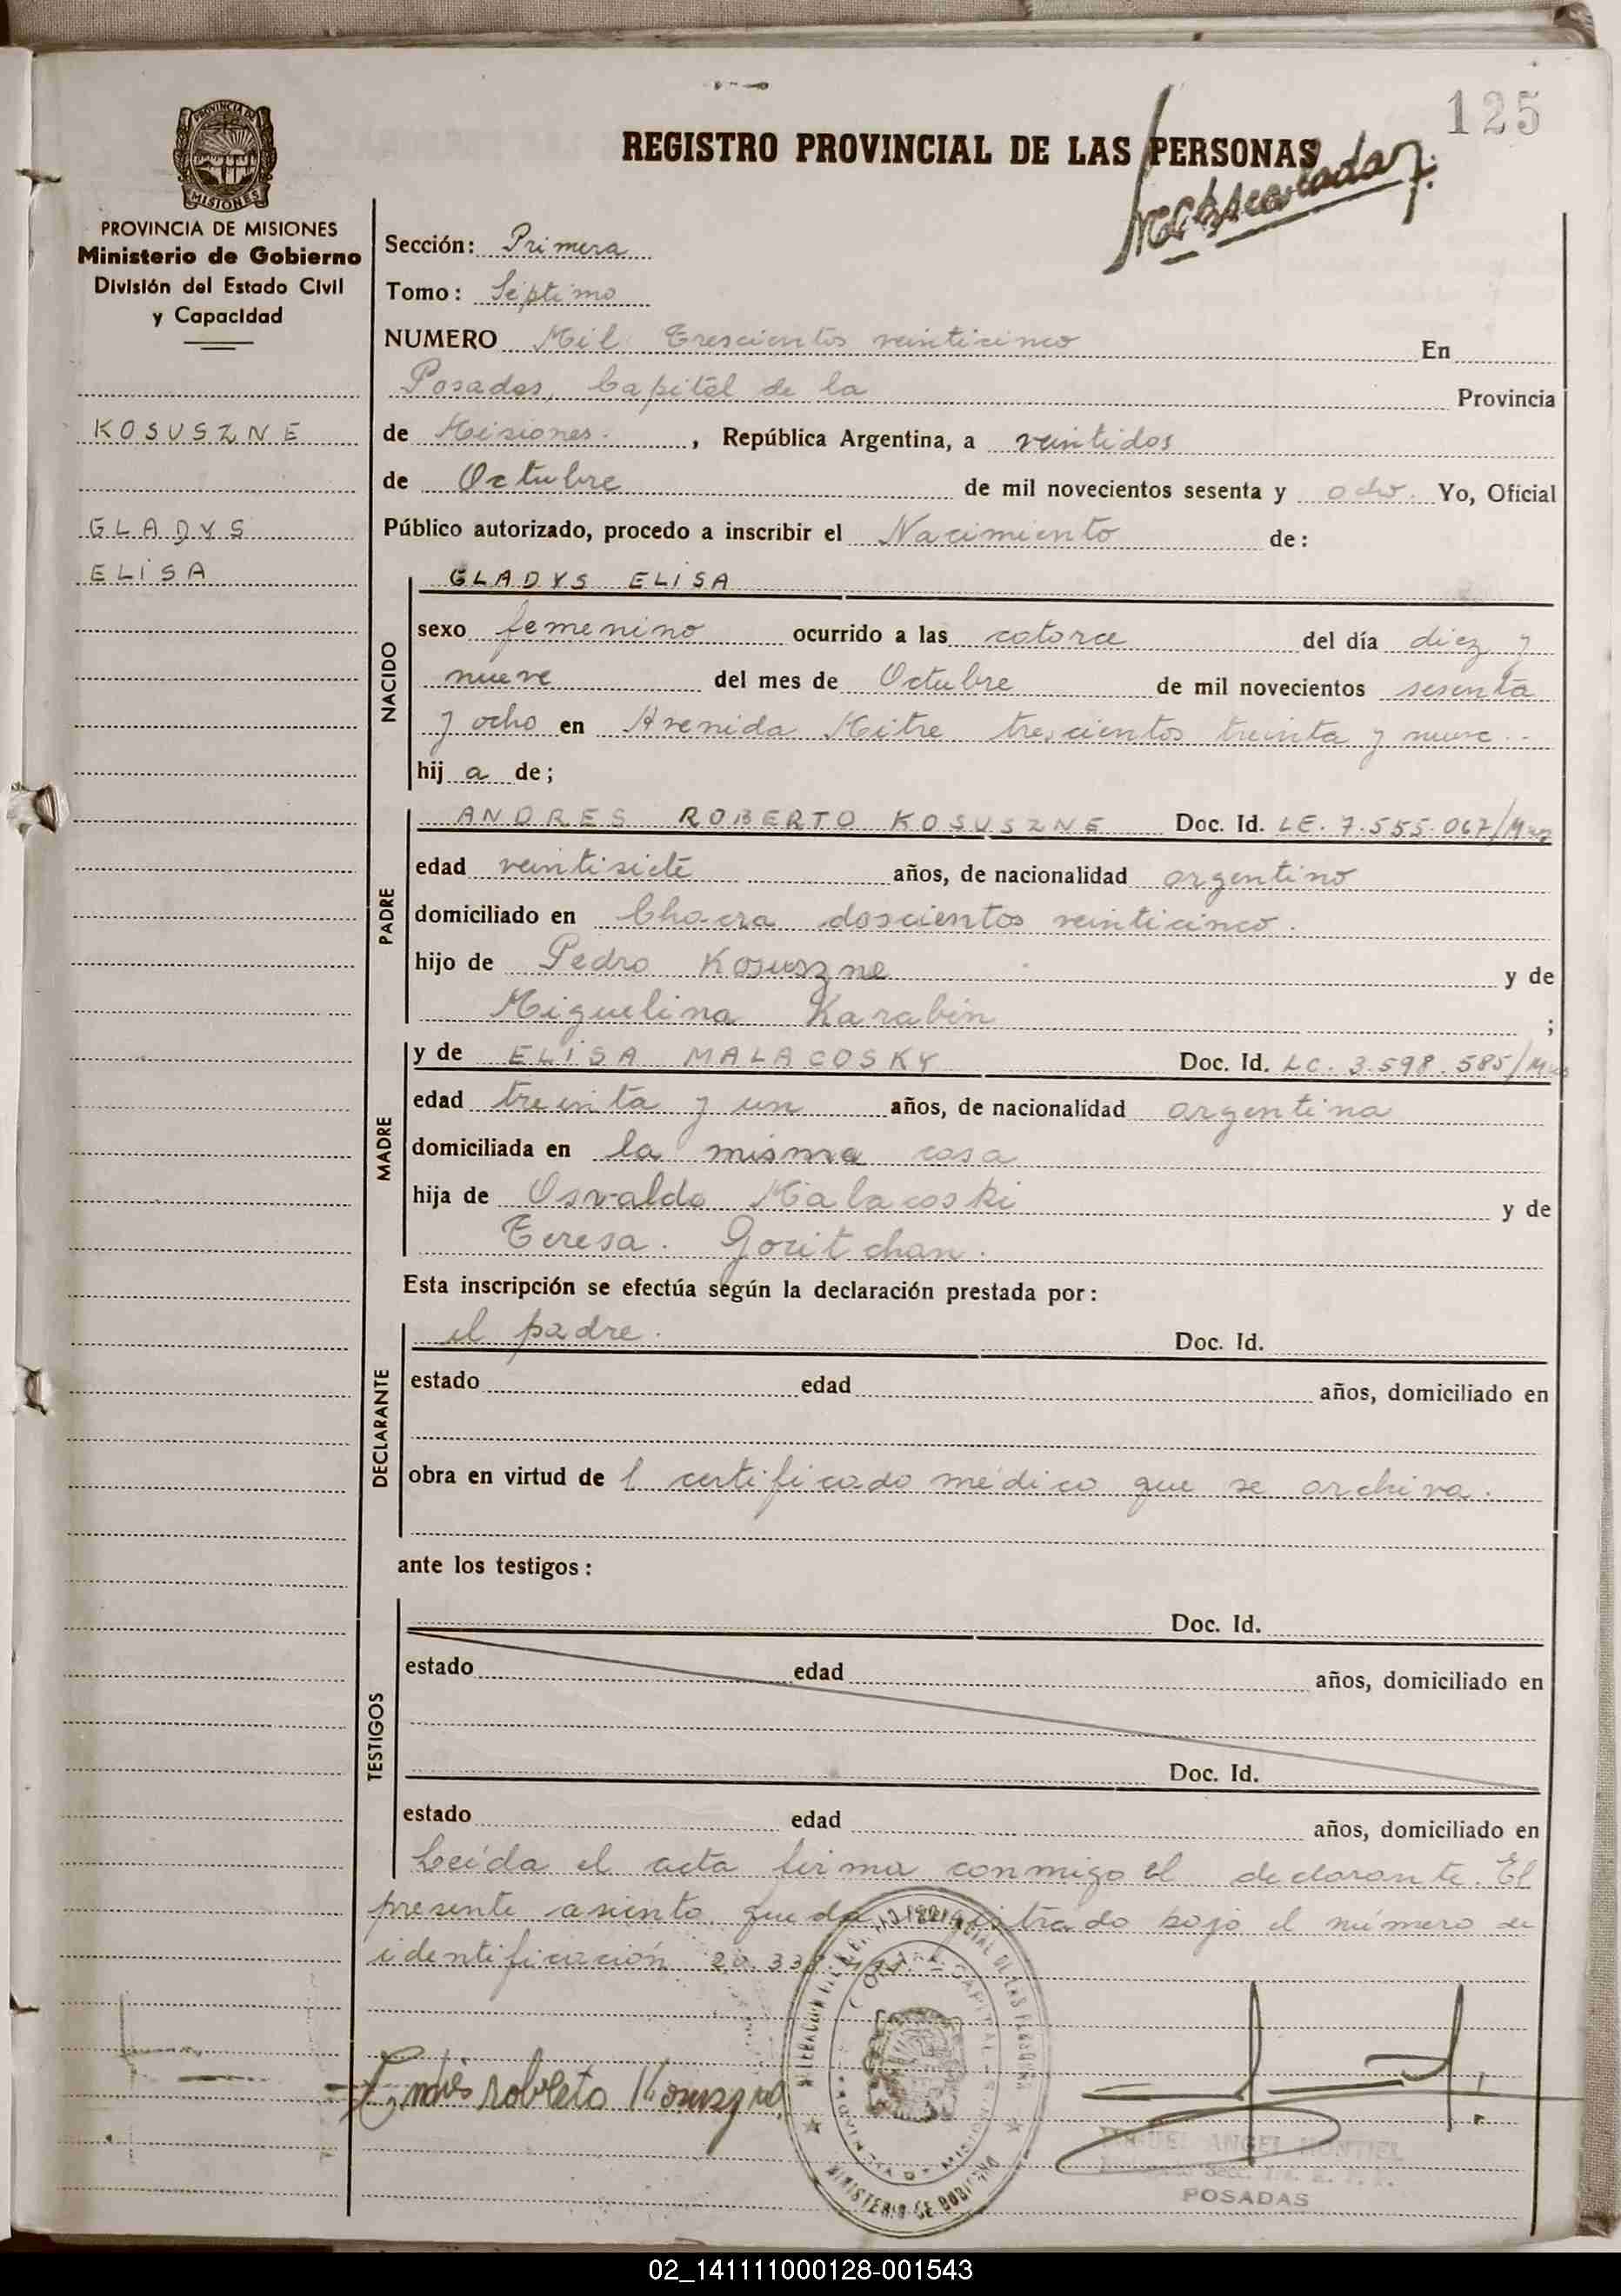 125
REGISTRO PROVINCIAL DE LAS PERSONAS
PROVINCIA DE MISIONES
Ministerio de Gobierno
División del Estado Civil
y Capacidad
KOSUSZNE
GLADYS
ELISA
Sección: Primera
Tomo: Séptimo
NUMERO Mil Trescientos veinticinco En
Posadas, Capital de la Provincia
de Misiones. , República Argentina, a veintidos
de Octubre de mil novecientos sesenta y ocho. Yo, Oficial
Público autorizado, procedo a inscribir el Nacimiento de:
NACIDO
GLADYS ELISA
sexo femenino ocurrido a las catorce del día diez y
nueve del mes de Octubre de mil novecientos sesenta
y ocho en Avenida Mitre trescientos treinta y nueve
hij a de;
PADRE
ANDRES ROBERTO KOSUSZNE Doc. Id. LE. 7.555.067/
edad veintisiete años, de nacionalidad argentino
domiciliado en Chacra doscientos veinticinco.
hijo de Pedro Kosuszne y de
Miguelina Karabin ;
MADRE
y de ELISA MALACOSKY Doc. Id. LC. 3.598.585/
edad treinta y un años, de nacionalidad argentina
domiciliada en la misma casa
hija de Osvaldo Malacoski y de
Teresa. Goritchan.
Esta inscripción se efectúa según la declaración prestada por:
DECLARANTE
el padre. Doc. Id.
estado edad años, domiciliado en
obra en virtud de l certificado médico que se archiva.
ante los testigos:
TESTIGOS
Doc. Id.
estado edad años, domiciliado en
Doc. Id.
estado edad años, domiciliado en
Leída el acta firma conmigo el declarante. El
presente asiento queda registrado bajo el número de
identificación 20.338
Andrés Roberto Kosuszne
MINISTERIO DE GOBIERNO
ANGEL MONTIEL
POSADAS
02_141111000128-001543